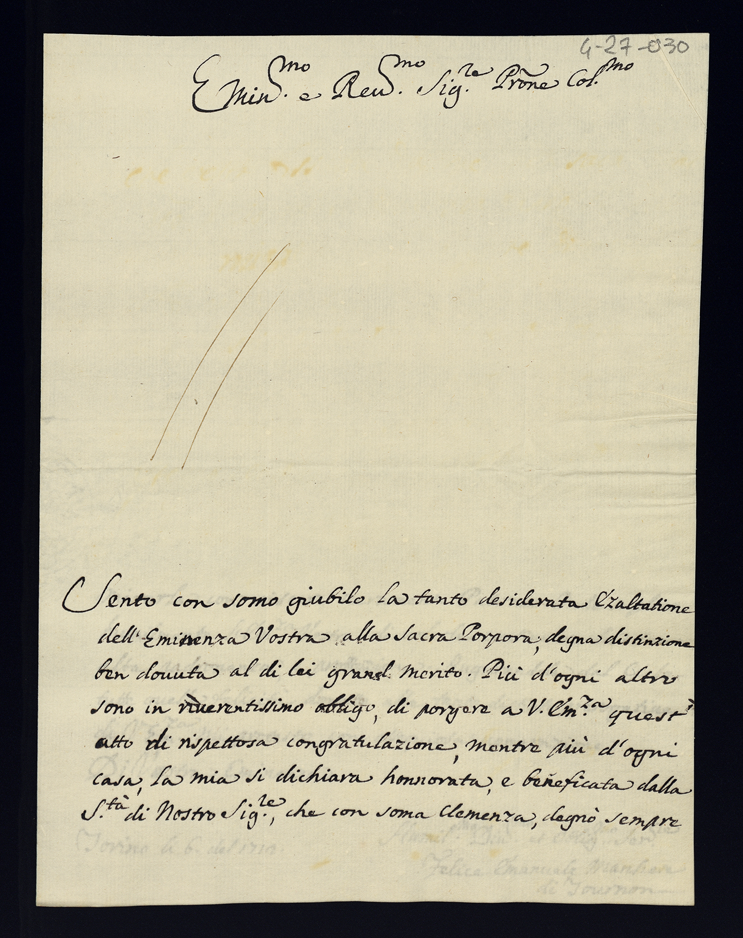 4-27-030
Emin.mo e Reu.mo Sig.re Prõne Col.mo
Sento con somo giubilo la tanto desiderata Ezaltatione
dell'Eminenza Vostra alla Sacra Porpora, degna distinzione
ben douuta al di lei grand merito. Più d'ogni altro
sono in riuerentissimo obligo, di porgere a V. Em.za quest'
atto di rispettosa congratulazione, mentre più d'ogni
casa, la mia si dichiara honnorata, e beneficata dalla
S.tà di Nostro Sig.re, che con soma Clemenza, degnò sempre
Torino li 6. del
Felice Emanuele
di Tournon